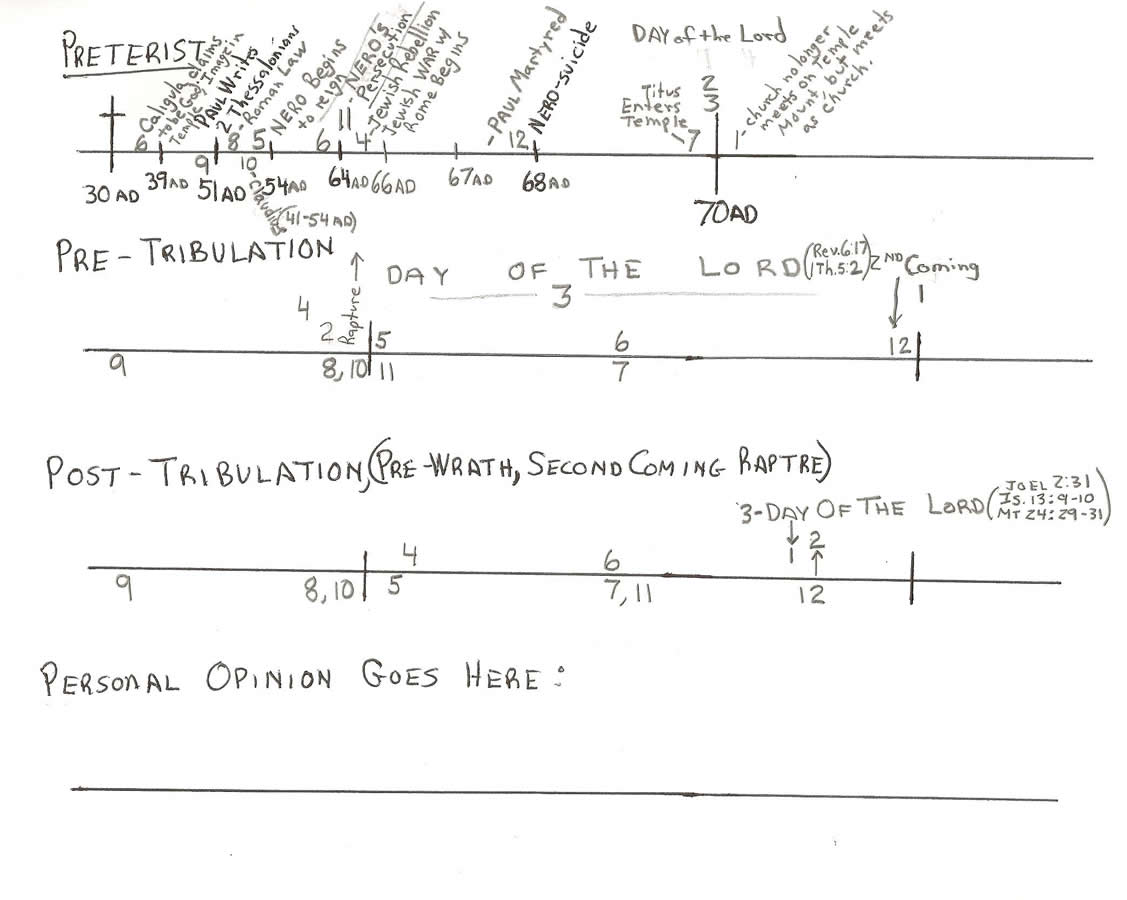 PRETERIST
6 Caligula claims
to be God, Image in
Temple
PAUL Writes
2 Thessalonians
8 - Roman Law
5 NERO Begins
to reign
6
11 - NERO's
Persecution
4 - Jewish Rebellion
Jewish WAR w/
Rome Begins
- PAUL Martyred
12 NERO-suicide
DAY of the Lord
2
3
Titus
Enters
Temple
7
1 - church no longer
meets on Temple
Mount but meets
as church.
9
10 - Claudius
(41-54 AD)
30 AD
39 AD
51 AD
54 AD
64 AD
66 AD
67 AD
68 AD
70 AD
PRE - TRIBULATION
Rapture
DAY OF THE LORD (Rev. 6:17
1 Th. 5:2) 2ND Coming
3
1
4
2
5
6
12
9
8, 10
11
7
POST - TRIBULATION, (PRE-WRATH, SECOND COMING RAPTRE)
3 - DAY OF THE LORD (JOEL 2:31
IS. 13:9-10
MT 24:29-31)
4
6
1
2
9
8, 10
5
7, 11
12
PERSONAL OPINION GOES HERE: